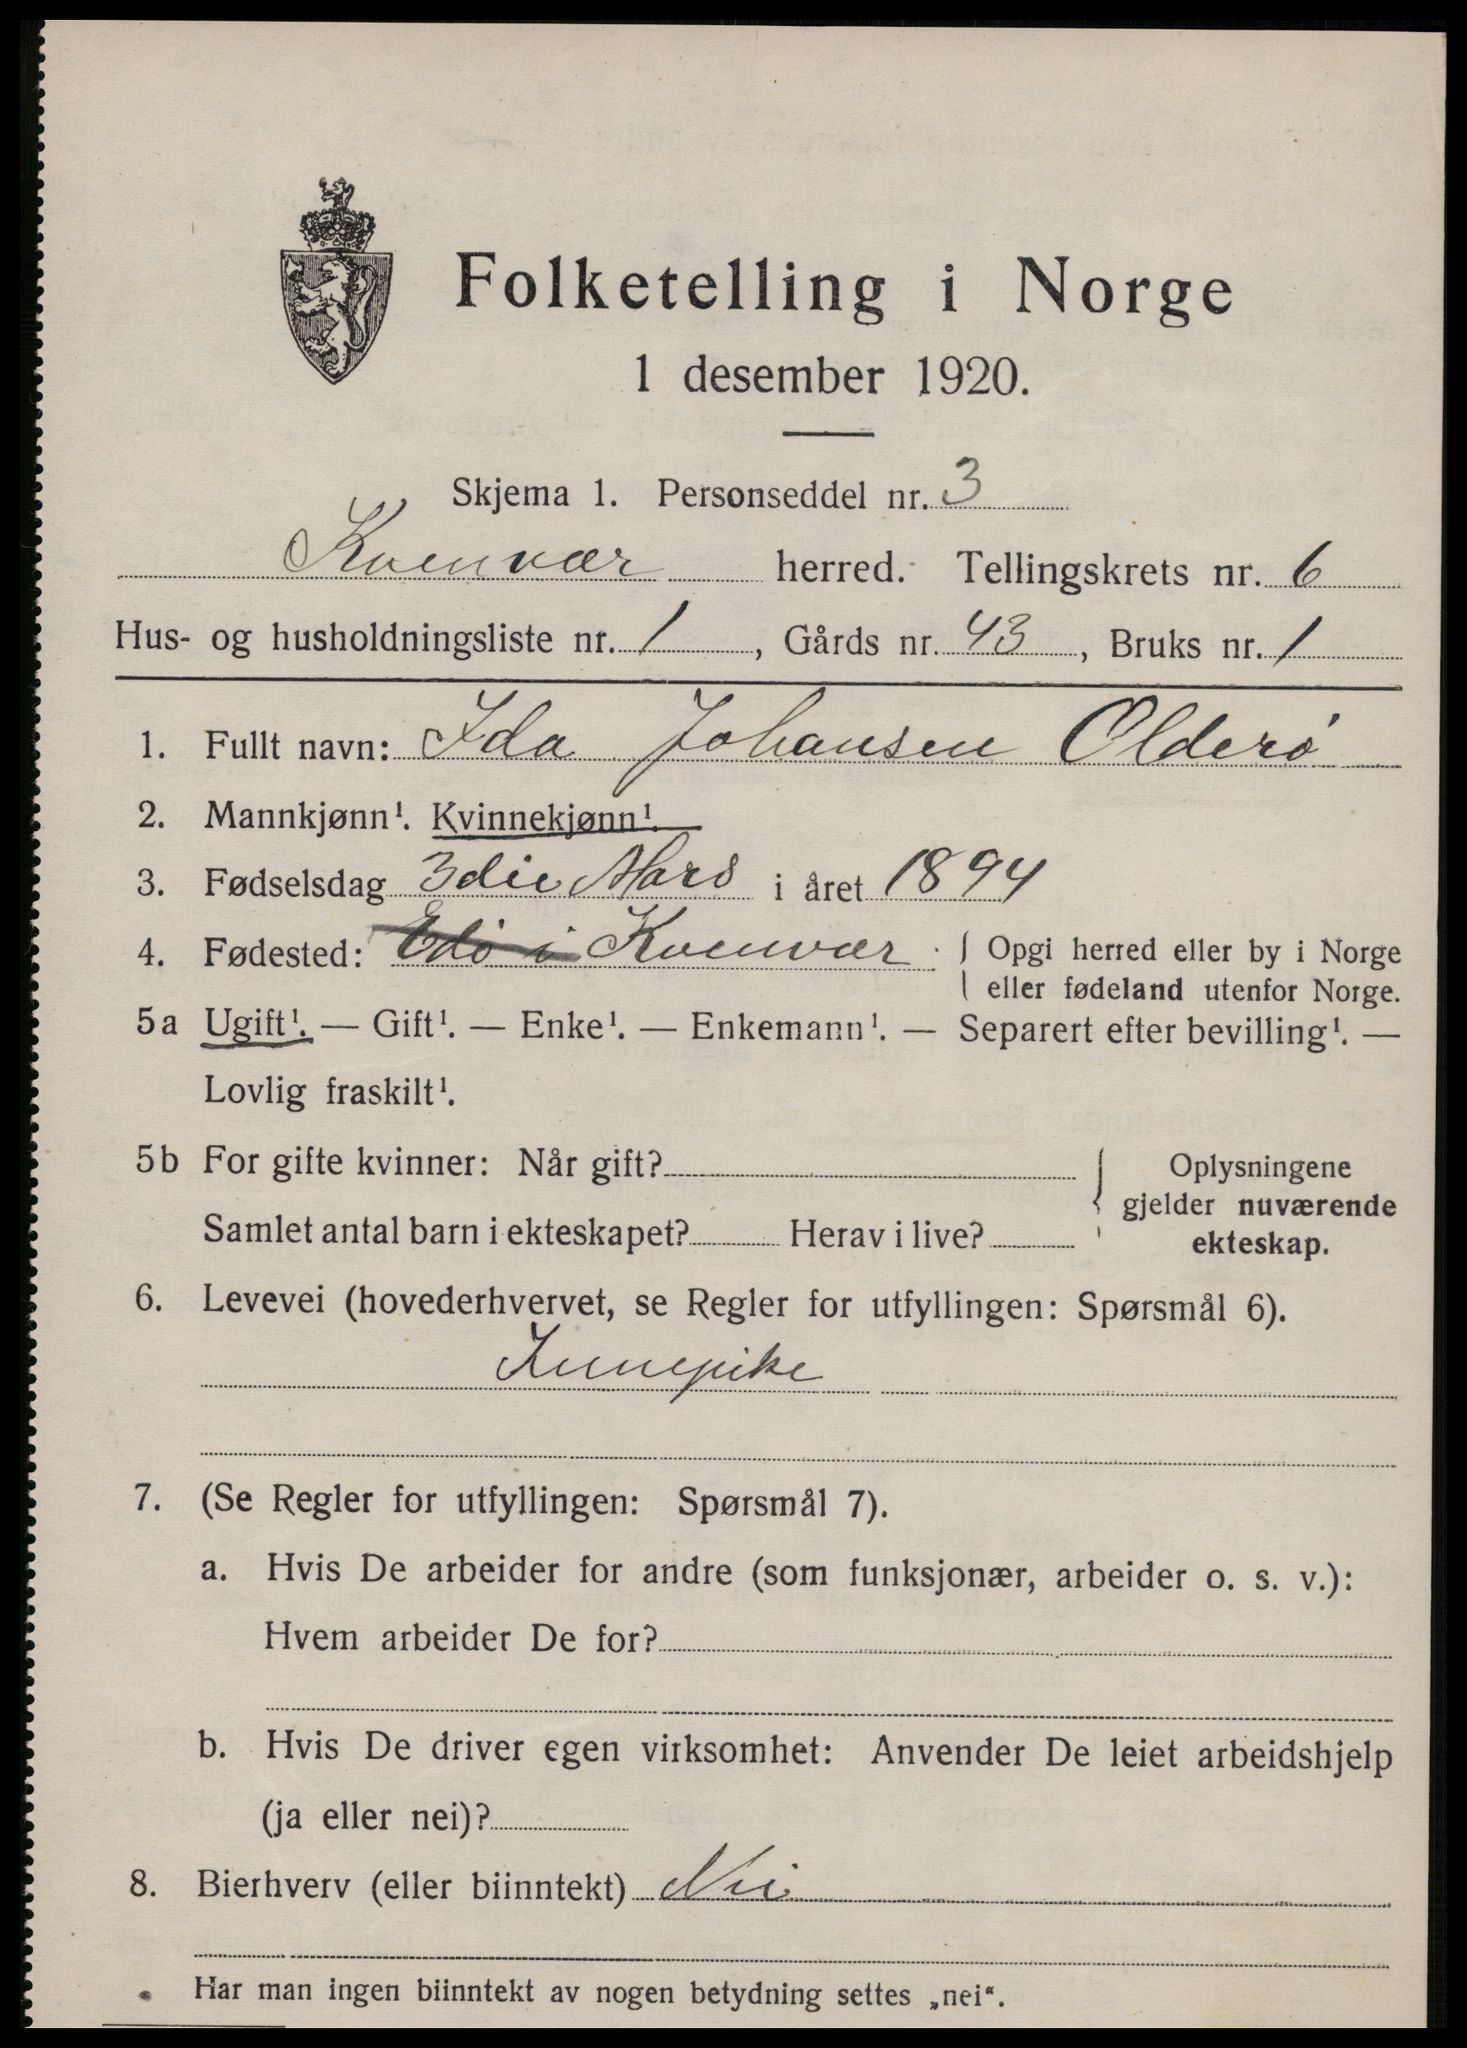 Folketelling i Norge
1 desember 1920.
Skjema 1. Personseddel nr. 3
Kvenvær herred. Tellingskrets nr. 6
Hus- og husholdningsliste nr. 1, Gårds nr. 43, Bruks nr. 1
1. Fullt navn: Ida Johansen Olderø
2. Mannkjønn¹. Kvinnekjønn¹.
3. Fødselsdag 3die Mars i året 1894
4. Fødested: Edø i Kvenvær. Opgi herred eller by i Norge
eller fødeland utenfor Norge.
5a Ugift¹. — Gift¹. — Enke¹. — Enkemann¹. — Separert efter bevilling¹. —
Lovlig fraskilt¹.
5b For gifte kvinner: Når gift?
Samlet antal barn i ekteskapet? Herav i live?
Oplysningene
gjelder nuværende
ekteskap.
6. Levevei (hovederhvervet, se Regler for utfyllingen: Spørsmål 6).
Innepike
7. (Se Regler for utfyllingen: Spørsmål 7).
a. Hvis De arbeider for andre (som funksjonær, arbeider o. s. v.):
Hvem arbeider De for?
b. Hvis De driver egen virksomhet: Anvender De leiet arbeidshjelp
(ja eller nei)?
8. Bierhverv (eller biinntekt) Nei
Har man ingen biinntekt av nogen betydning settes „nei“.